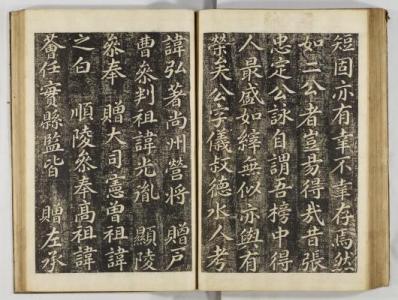 短固亦有幸不幸存焉然
如二公者豈易得哉昔張
忠定公詠自謂吾榜中得
人最盛如辭無似亦與有
榮矣公字儀叔德水人考
諱弘著尚州營將 贈戶
曹參判祖諱光胤 顯陵
參奉 贈大司憲曾祖諱
之白 順陵參奉高祖諱
薈任實縣監皆 贈左承